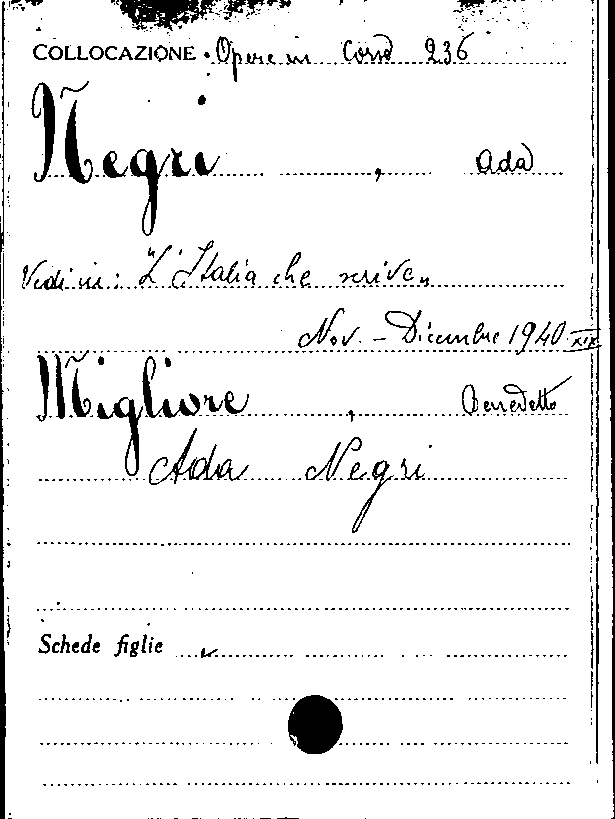 COLLOCAZIONE . Opere in Corso 236
Negri , Ada
Vedi in: "L'Italia che scrive"
Nov. - Dicembre 1940 XIX
Migliore , Benedetto
Ada Negri
Schede figlie